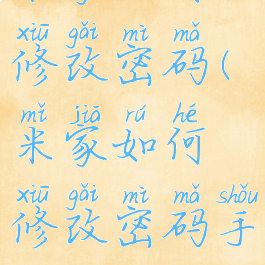 xiū gǎi mì mǎ
修改密码(
mǐ jiā rú hé
米家如何
xiū gǎi mì mǎ shǒu
修改密码手